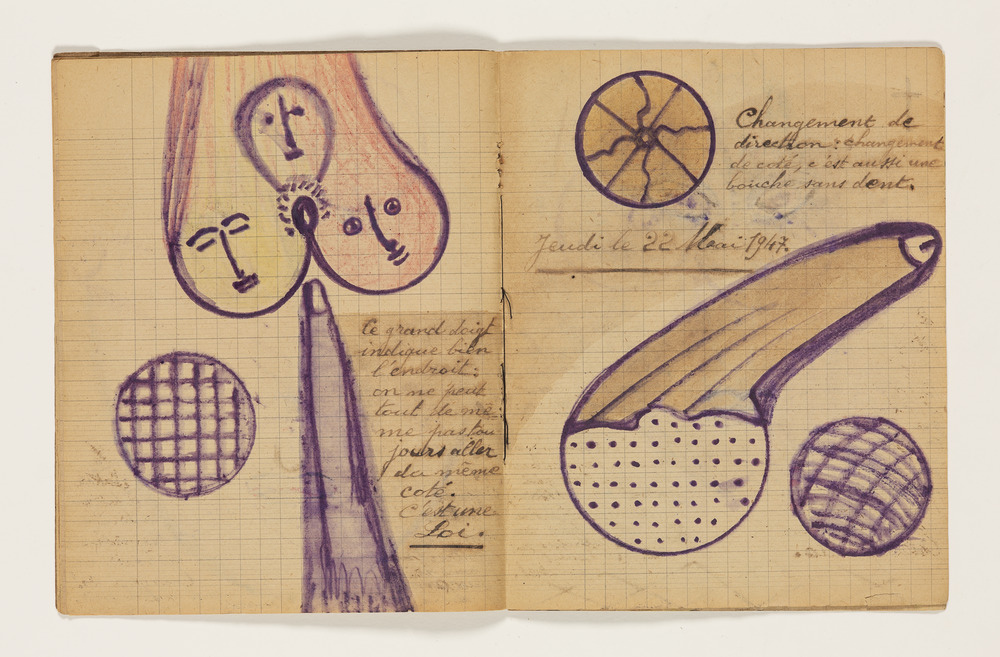 Le grand doigt
indique bien
l'endroit :
on ne peut
tout de mê
me pas tou
jours aller
du même
coté.
c'est une
Loi.
Changement de
direction : changement
de coté, c'est aussi une
bouche sans dent.
Jeudi le 22 Mai 1947.